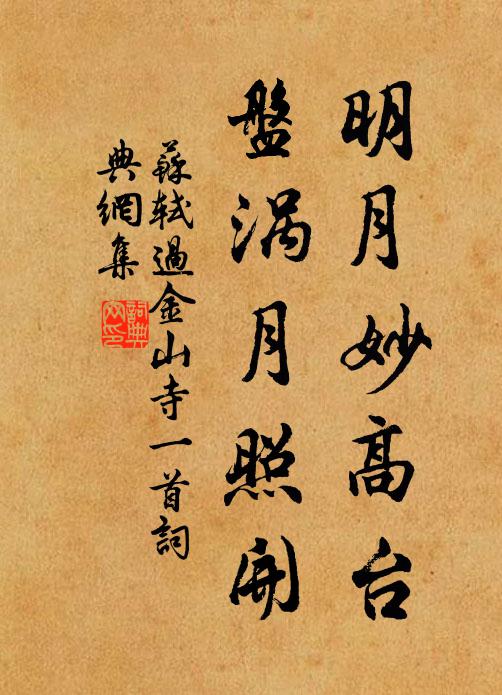 明月妙高台
盤涡月照開
蘇軾過金山寺一首詞
典網集
詞典
网印